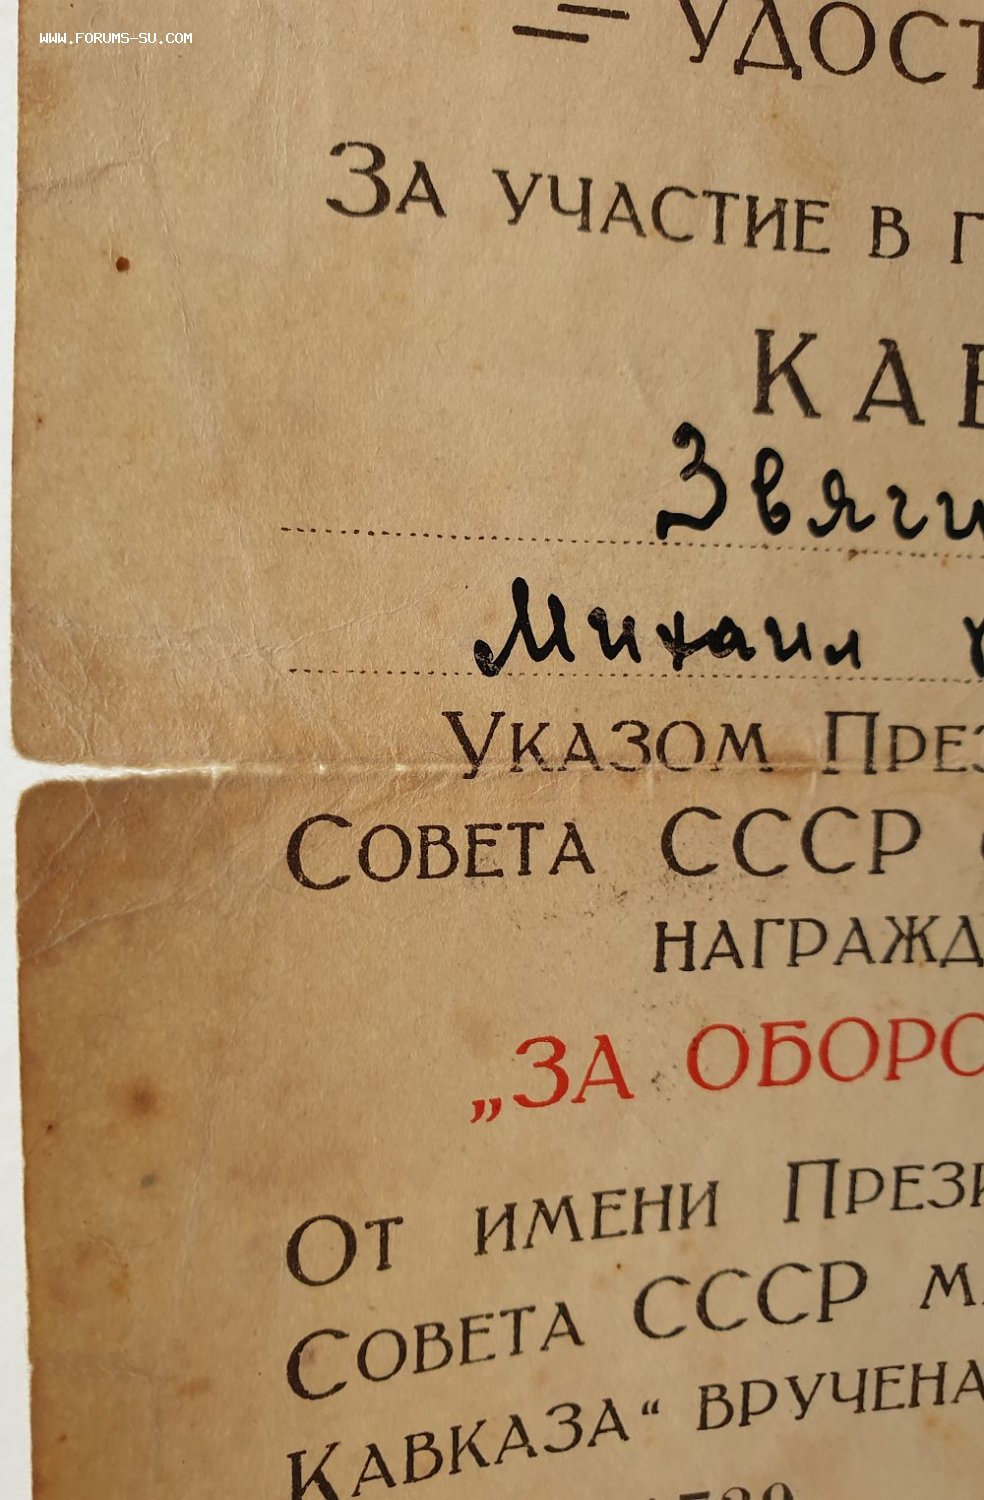 WWW.FORUMS-SU.COM
— УДОСТ
ЗА УЧАСТИЕ В Г
КАВ
Звяги
Михаил
УКАЗОМ ПРЕЗ
СОВЕТА СССР
НАГРАЖД
„ЗА ОБОРО
ОТ ИМЕНИ ПРЕЗИ
СОВЕТА СССР М
КАВКАЗА“ ВРУЧЕНА